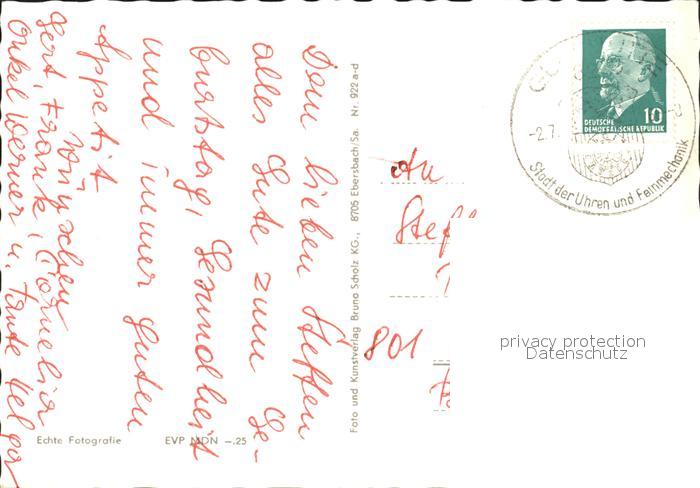 Dem lieben Steffen
alles Gute zum Ge-
burtstag, Gesundheit
und immer guten
Appetit
wünschen
Gert, Frank, Cornelia
Onkel Werner u. Tante Helga
Echte Fotografie
EVP MDN -.25
Foto und Kunstverlag Bruno Scholz KG., 8705 Ebersbach/Sa. Nr. 922 a-d
An
Stef
801
10
DEUTSCHE
DEMOKRATISCHE REPUBLIK
-2.7.
Stadt der Uhren und Feinmechanik
privacy protection
Datenschutz